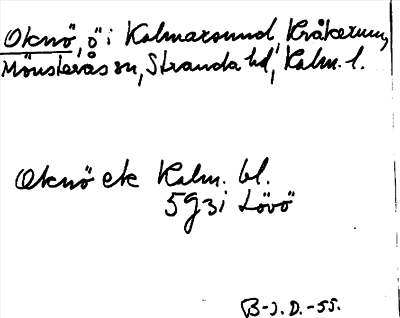 Oknö, ö i Kalmarsund, Kråkerum,
Mönsterås sn, Stranda hd, Kalm. l.
Oknö ek Kalm. bl.
5g3i Lövö
B-J. D. -55.